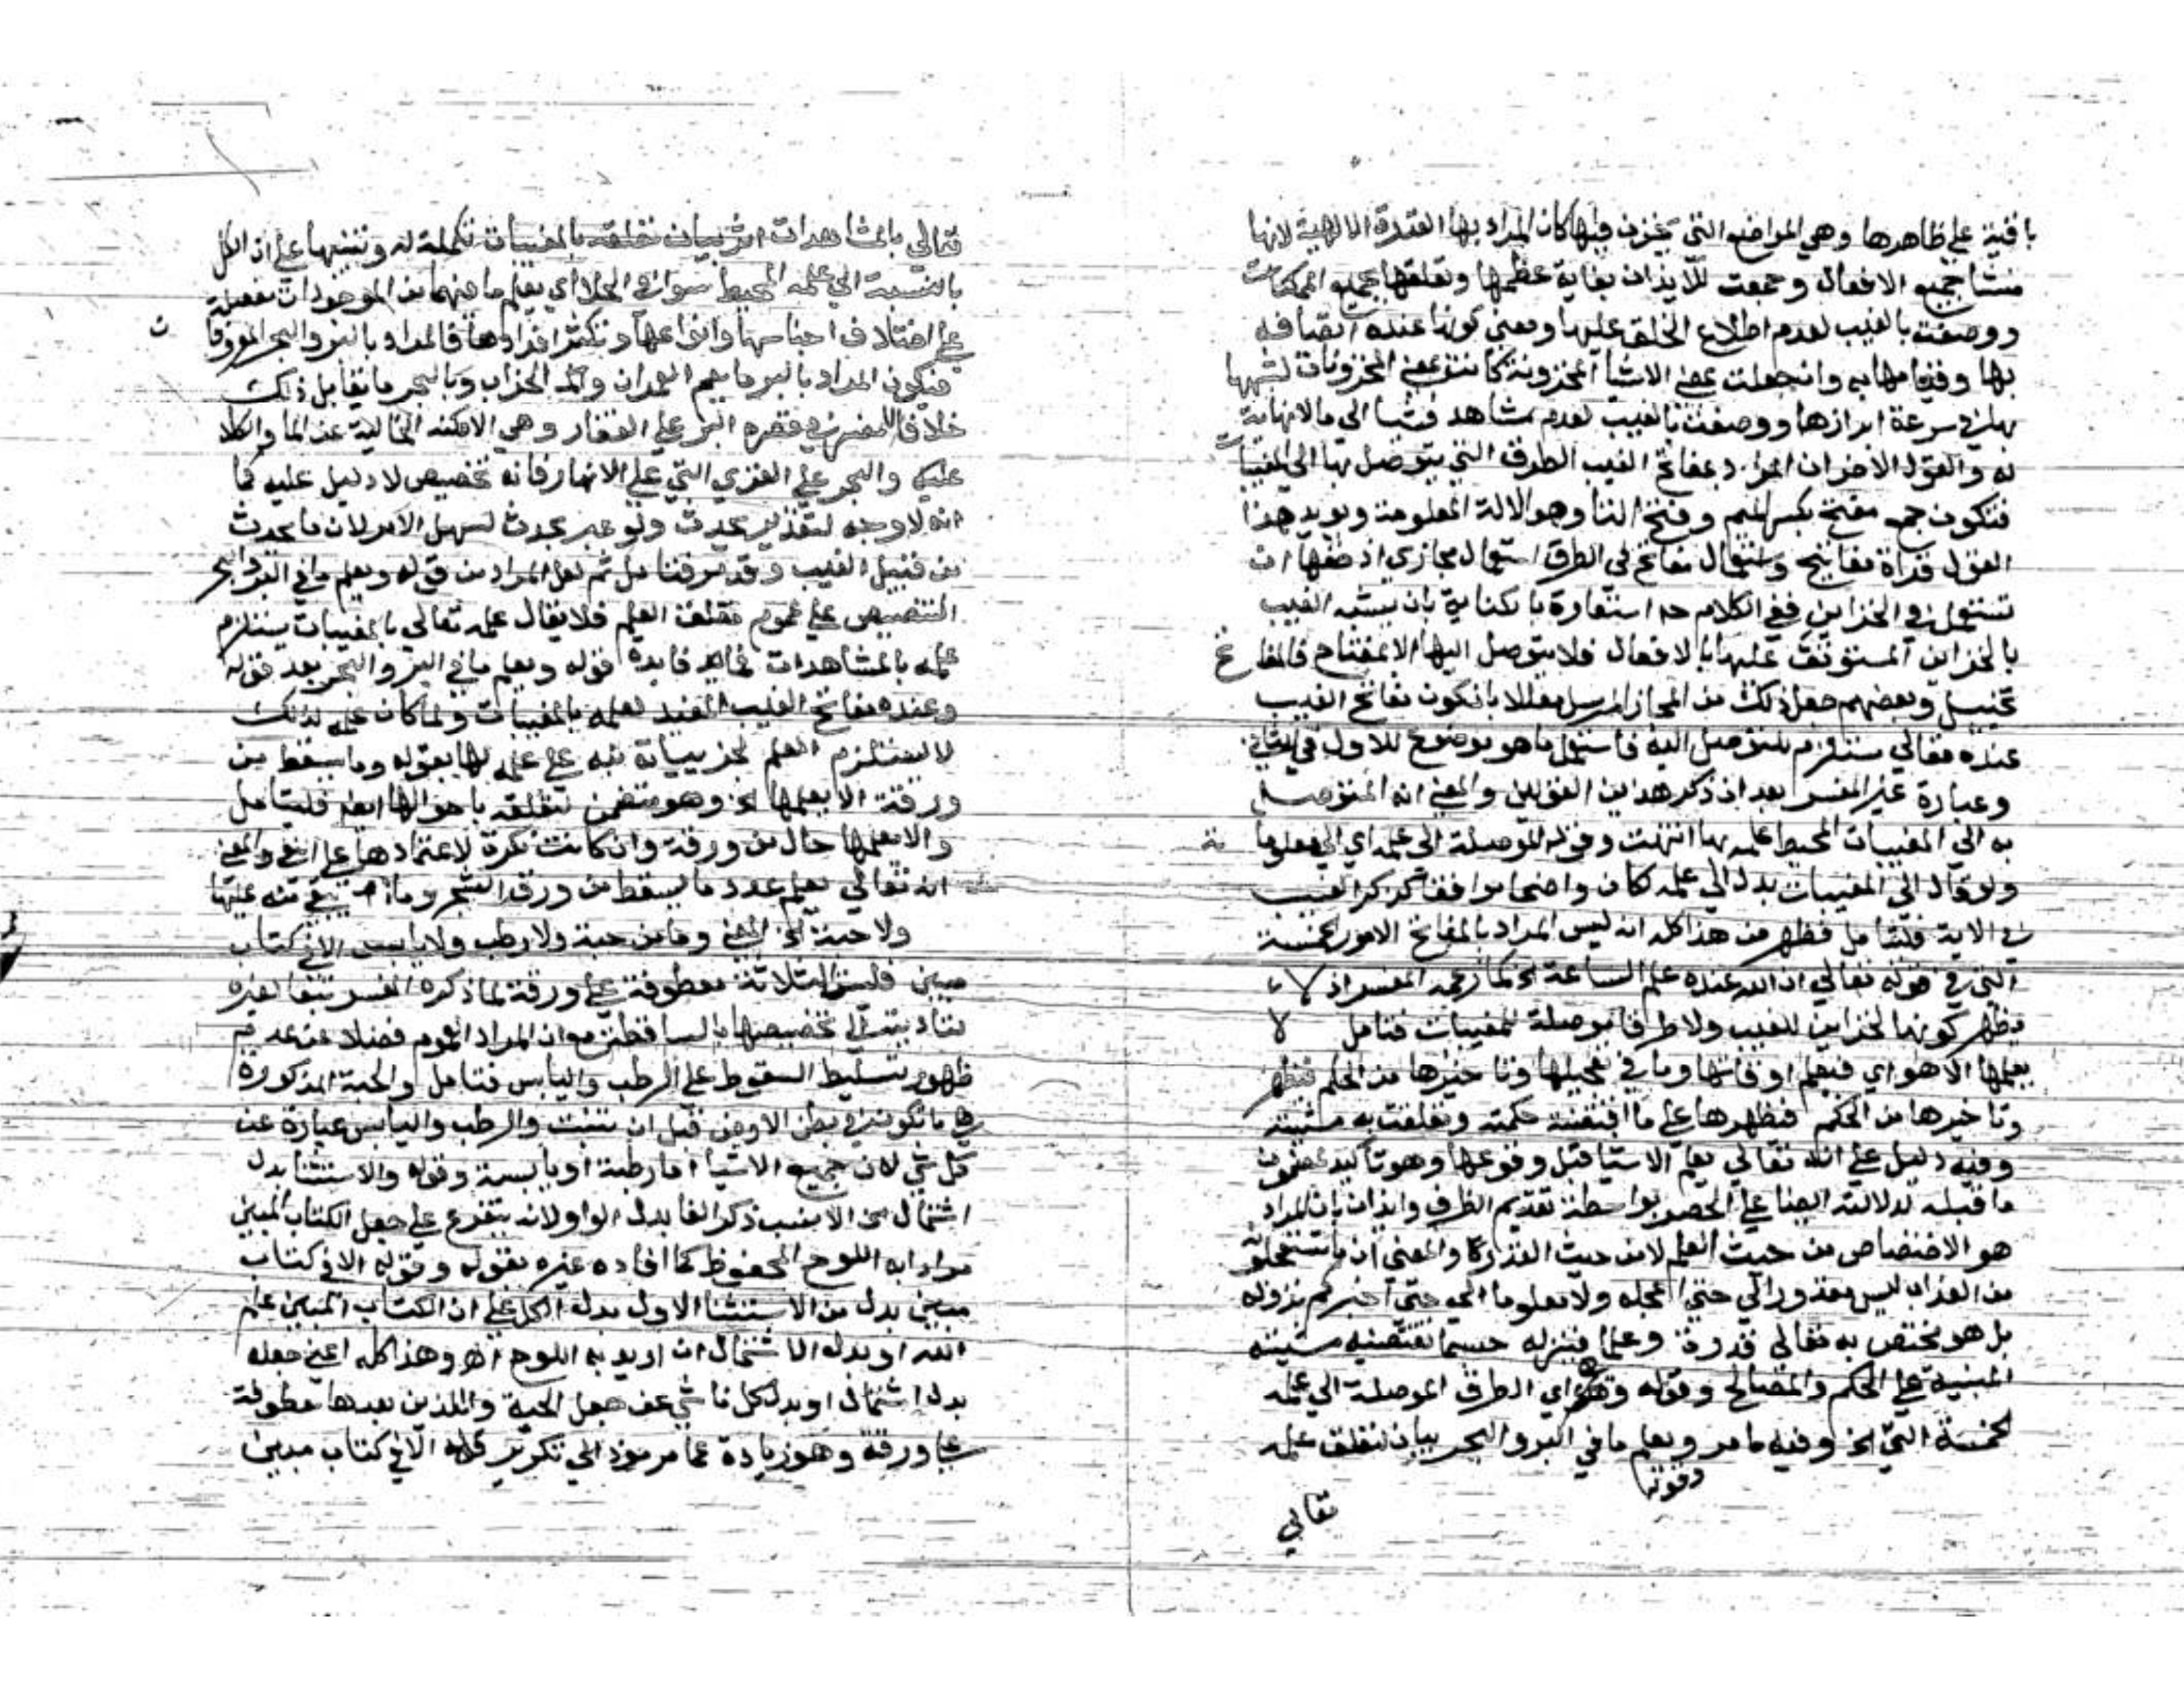 باقية على ظاهرها وهي المواضع التي تخزن فيها كان المراد بها القدرة الالهية لانها
منشا جميع الافعال وجمعت للايذان بغاية عظمها وتعلقها بجميع الممكنات
ووصفت بالغيب لعدم اطلاع الخلق عليها ومعنى كونها عنده اتصافه
بها وقيامها به وان جعلت بمعنى الاشيا المخزونة كانت بمعنى المخزونات لشبهها
بها في سرعة ابرازها ووصفت بالغيب لعدم مشاهد فتنا الى ما لا نهاية
له والقول الاخر ان المراد بمفاتح الغيب الطرق التي يتوصل بها الى المغيبات
فتكون جمع مفتح بكسر الميم وفتح التا وهو الالة المعلومة ويويد هذا
القول قراة مفاتيح واستعمال مفاتح في الطرق استعمال مجازي اذ حقها ان
تستعمل في الخزاين ففي الكلام استعارة بالكناية بان يشبه الغيب
بالخزاين المستوثق عليها بالاقفال فلا يتوصل اليها الا بمفتاح فالمفاتح
تخييل وبعضهم جعل ذلك من المجاز المرسل معللا بان كون مفاتح الغيب
عنده تعالى مستلزم للتوصل اليه فاستعمل ما هو موضوع للاول في الثاني
وعبارة غير المفسر بعد ان ذكر هذين القولين والمعنى انه المتوصل
به الى المغيبات المحيط علمه بها انتهت وقوله الموصلة الى علمه اي الى معلوماته
ولو قال الى المغيبات بدل الى علمه لكان واضحا موافقا لذكر الغيب
في الاية فليتامل فظهر من هذا كله ان ليس المراد بالمفاتح الامور الخمسة
التي في قوله تعالى ان الله عنده علم الساعة الخ كما زعمه المفسر اذ لا
يظهر كونها لخزاين للغيب ولا طرقا موصلة للمغيبات فتامل لا
يعلمها الا هو اي فيعلم اوقاتها وما في تعجيلها وتاخيرها من الحكم فتظهر
وتاخيرها من الحكم فتظهرها على ما اقتضته حكمته وتعلقت به مشيئته
وفيه دليل على انه تعالى يعلم الاشيا قبل وقوعها وهو تاكيد لمضمون
ما قبله لدلالته ايضا على الحصر بواسطة تقديم الظرف وايذان بان المراد
هو الاختصاص من حيث العلم لا من حيث القدرة والمعنى ان ما تستعجلونه
من العذاب ليس مقدورا لي حتى اعجله ولا معلوما لي حتى اخبركم بنزوله
بل هو مختص به تعالى قدرة وعلما فينزله حسبما تقتضيه مشيئته
المبنية على الحكم والمصالح وقوله وهي اي الطرق الموصلة الى علمه
الخمسة التي الخ وفيه ما مر ويعلم ما في البر والبحر بيان لتعلق علمه
وقوتها
تعالى
تعالى بالمشاهدات اثر بيان تعلقه بالمغيبات تكملة له وتنبيها على ان الكل
بالنسبة الى علمه المحيط سوا في الجلا اي يعلم ما فيهما من الموجودات مفصلة
على اختلاف اجناسها وانواعها وتكثر افرادها فالمراد بالبر والبحر المعروفان
فيكون المراد بالبر ما يعم العمران والخراب وبالبحر ما يقابل ذلك
خلافا للمفسر في قصره البر على القفار وهي الامكنة الخالية عن الما والكلا
عليه والبحر على القرى التي على الانهار فانه تخصيص لا دليل عليه كما
انه لا وجه لتقدير يحدث ولو عبر بحدث لسهل الامر لان ما يحدث
من قبيل الغيب وقد مر فتامل ثم لعل المراد من قوله ويعلم ما في البر والبحر
التنصيص على عموم تعلق العلم فلا يقال علمه تعالى بالمغيبات يستلزم
علمه بالمشاهدات فما فايدة قوله ويعلم ما في البر والبحر بعد قوله
وعنده مفاتح الغيب المفيد لعلمه بالمغيبات ولما كان علمه بذلك
لا يستلزم العلم بجزيياته نبه على علمه لها بقوله وما يسقط من
ورقة الا يعلمها الخ وهو متضمن لتعلقه باحوالها ايضا فليتامل
والا يعلمها حال من ورقة وان كانت نكرة لاعتمادها على النفي والمعنى
انه تعالى يعلم عدد ما يسقط من ورق الشجر وما يبقى منه عليها
ولا حبة الخ المعنى وما من حبة ولا رطب ولا يابس الا في كتاب
مبين فليس الثلاثة معطوفة على ورقة لما ذكره المفسر تبعا لغيره
تخصيصها بالساقطة مع ان المراد العموم فضلا عن عدم
ظهور تسليط السقوط على الرطب واليابس فتامل والحبة المذكورة
هي ما تكون في بطن الارض قبل ان تنبت والرطب واليابس عبارة عن
كل شي لان جميع الاشيا اما رطبة او يابسة وقوله والاستثنا بدل
اشتمال الخ الانسب ذكر الفا بدل الواو لانه يتفرع على جعل الكتاب المبين
مرادا به اللوح المحفوظ كما افاده غيره بقوله وقوله الا في كتاب
مبين بدل من الاستثنا الاول بدل الكل على ان الكتاب المبين علم
الله او بدل الاشتمال ان اريد به اللوح اه وهذا كله اعني جعله
بدل اشتمال او بدل كل ناشي عن جعل الحبة واللذين بعدها معطوفة
على ورقة وهو زيادة عما مر مود الى تكرير قوله الا في كتاب مبين